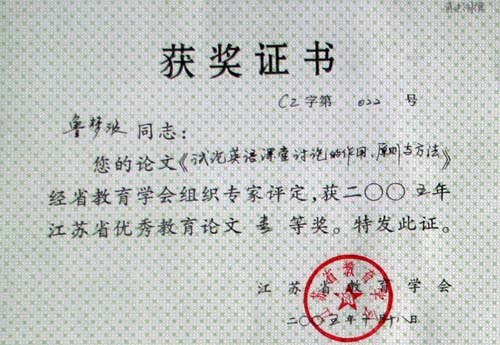 获奖证书
CZ字第 022 号
鲁梦波 同志：
您的论文《试论英语课堂讨论的作用、原则与方法》
经省教育学会组织专家评定，获二〇〇五年
江苏省优秀教育论文 壹 等奖。特发此证。
江苏省教育学会
二〇〇五年十月十八日